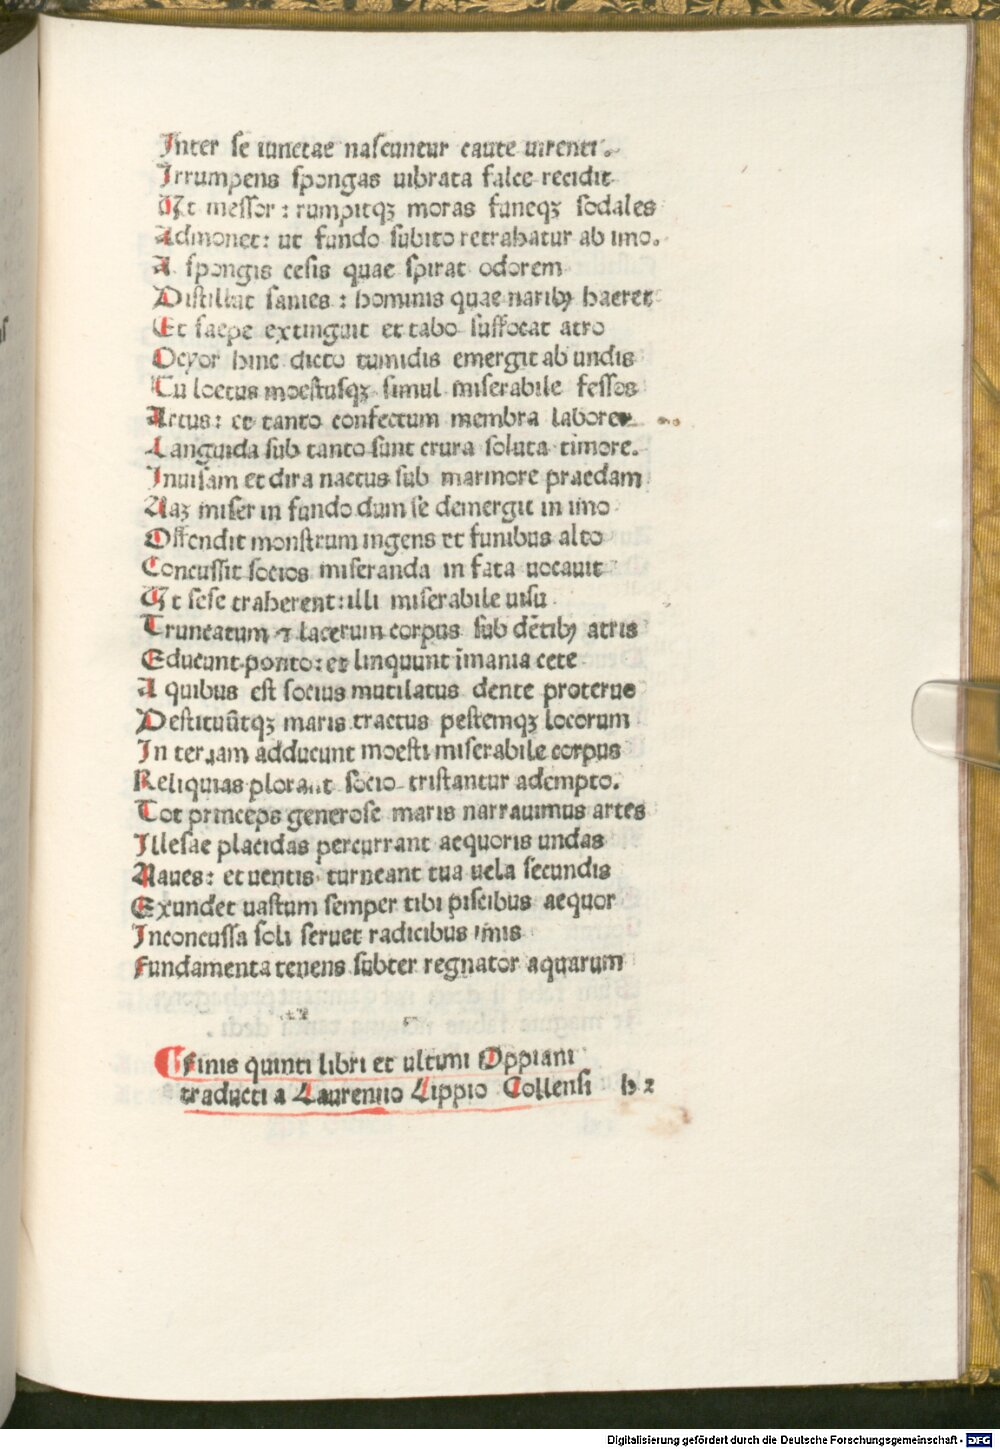 Inter se iunctae nascuntur caute uirenti.
Irrumpens spongas uibrata falce recidit
Ut messor: rumpitqꝫ moras funeqꝫ sodales
Admonet: ut fundo subito retrahatur ab imo.
A spongis cesis quae spirat odorem
Distillat sanies: hominis quae naribꝰ haeret
Et saepe extinguit et tabo suffocat atro
Ocyor hinc dicto tumidis emergit ab undis
Tu loetus moestusqꝫ simul miserabile fessos
Artus: et tanto confectum membra labore
Languida sub tanto sunt crura soluta timore.
Inuisam et dira nactus sub marmore praedam
Naꝫ miser in fundo dum se demergit in imo
Offendit monstrum ingens et funibus alto
Concussit socios miseranda in fata uocauit
Ut sese traherent: illi miserabile uisu
Truncatum ⁊ lacerum corpus sub dētibꝰ atris
Educunt ponto: et linquunt īmania cete
A quibus est socius mutilatus dente proteruo
Destituūtqꝫ maris tractus pestemqꝫ locorum
In terram adducunt moesti miserabile corpus
Reliquias plorant socio tristantur adempto.
Tot princeps generose maris narrauimus artes
Illesae placidas percurrant aequoris undas
Naues: et uentis turneant tua uela secundis
Exundet uastum semper tibi piscibus aequor
Inconcussa soli seruet radicibus imis
Fundamenta tenens subter regnator aquarum
Finis quinti libri et ultimi Oppiani
traducti a Laurentio Lippio Collensi h 2
Digitalisierung gefördert durch die Deutsche Forschungsgemeinschaft - DFG